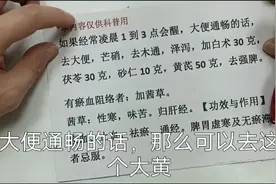 内容仅供科普用
如果经常凌晨1到3点会醒，大便通畅的话，
去大便，芒硝，去木通，泽泻，加白术30克，
茯苓30克，砂仁10克，黄芪50克，去强脾。
有瘀血阻络者：加茜草。
茜草：性寒，味苦。归肝经。【功效与作用】
祛瘀，通经。脾胃虚寒及无瘀滞
者忌服。
大便通畅的话，那么可以去这
个大黄